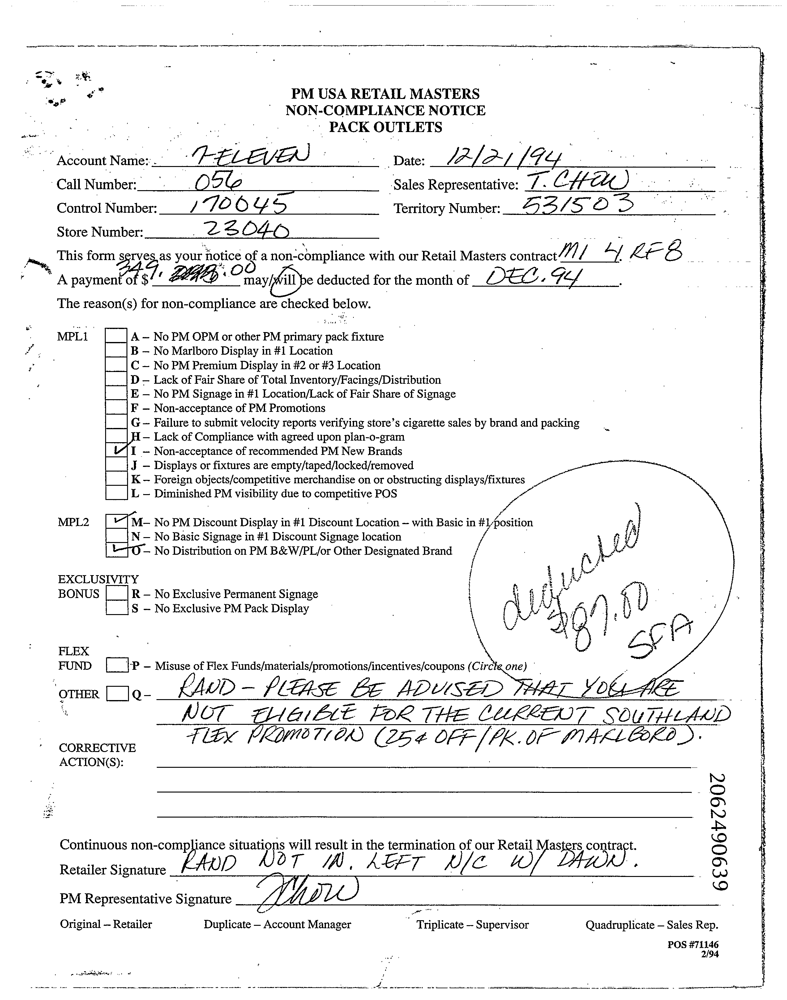 PM USA RETAIL MASTERS
NON-COMPLIANCE NOTICE
PACK OUTLETS
Account Name: 7-ELEVEN Date: 12/21/94
Call Number: 056 Sales Representative: T. CHOW
Control Number: 170045 Territory Number: 531503
Store Number: 23040
This form serves as your notice of a non-compliance with our Retail Masters contract M1 4 RF8
A payment of $ 349.00 may/will be deducted for the month of DEC. 94.
The reason(s) for non-compliance are checked below.
MPL1 A – No PM OPM or other PM primary pack fixture
B – No Marlboro Display in #1 Location
C – No PM Premium Display in #2 or #3 Location
D – Lack of Fair Share of Total Inventory/Facings/Distribution
E – No PM Signage in #1 Location/Lack of Fair Share of Signage
F – Non-acceptance of PM Promotions
G – Failure to submit velocity reports verifying store's cigarette sales by brand and packing
H – Lack of Compliance with agreed upon plan-o-gram
✓ I – Non-acceptance of recommended PM New Brands
J – Displays or fixtures are empty/taped/locked/removed
K – Foreign objects/competitive merchandise on or obstructing displays/fixtures
L – Diminished PM visibility due to competitive POS
MPL2 ✓ M – No PM Discount Display in #1 Discount Location – with Basic in #1 position
N – No Basic Signage in #1 Discount Signage location
✓ O – No Distribution on PM B&W/PL/or Other Designated Brand
deducted
$87.00
SFA
EXCLUSIVITY
BONUS R – No Exclusive Permanent Signage
S – No Exclusive PM Pack Display
FLEX
FUND P – Misuse of Flex Funds/materials/promotions/incentives/coupons (Circle one)
OTHER Q – RAND – PLEASE BE ADVISED THAT YOU ARE
NOT ELIGIBLE FOR THE CURRENT SOUTHLAND
FLEX PROMOTION (25¢ OFF/PK. OF MARLBORO).
CORRECTIVE
ACTION(S):
2062490639
Continuous non-compliance situations will result in the termination of our Retail Masters contract.
Retailer Signature RAND NOT IN. LEFT N/C W/ DAWN.
PM Representative Signature TChow
Original – Retailer Duplicate – Account Manager Triplicate – Supervisor Quadruplicate – Sales Rep.
POS #71146
2/94